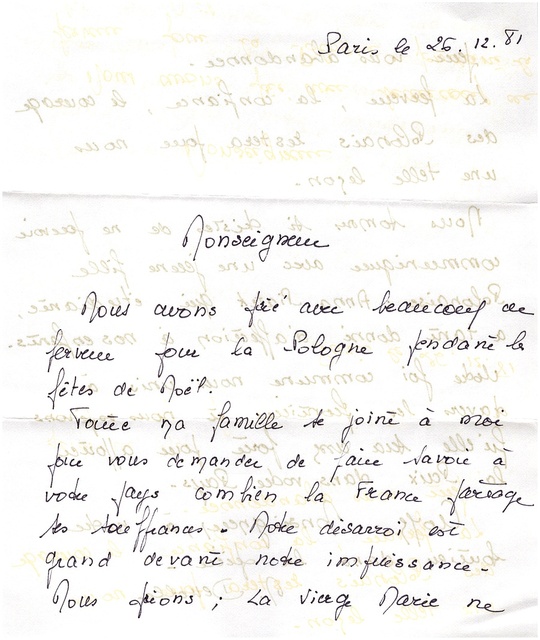 Paris le 26.12.81
Monseigneur
Nous avons prié avec beaucoup de
ferveur pour la Pologne pendant les
fêtes de Noël.
Toute ma famille se joint à moi
pour vous demander de faire savoir à
votre pays combien la France partage
ses souffrances. Notre désarroi est
grand devant notre impuissance.
Nous prions ; La Vierge Marie ne